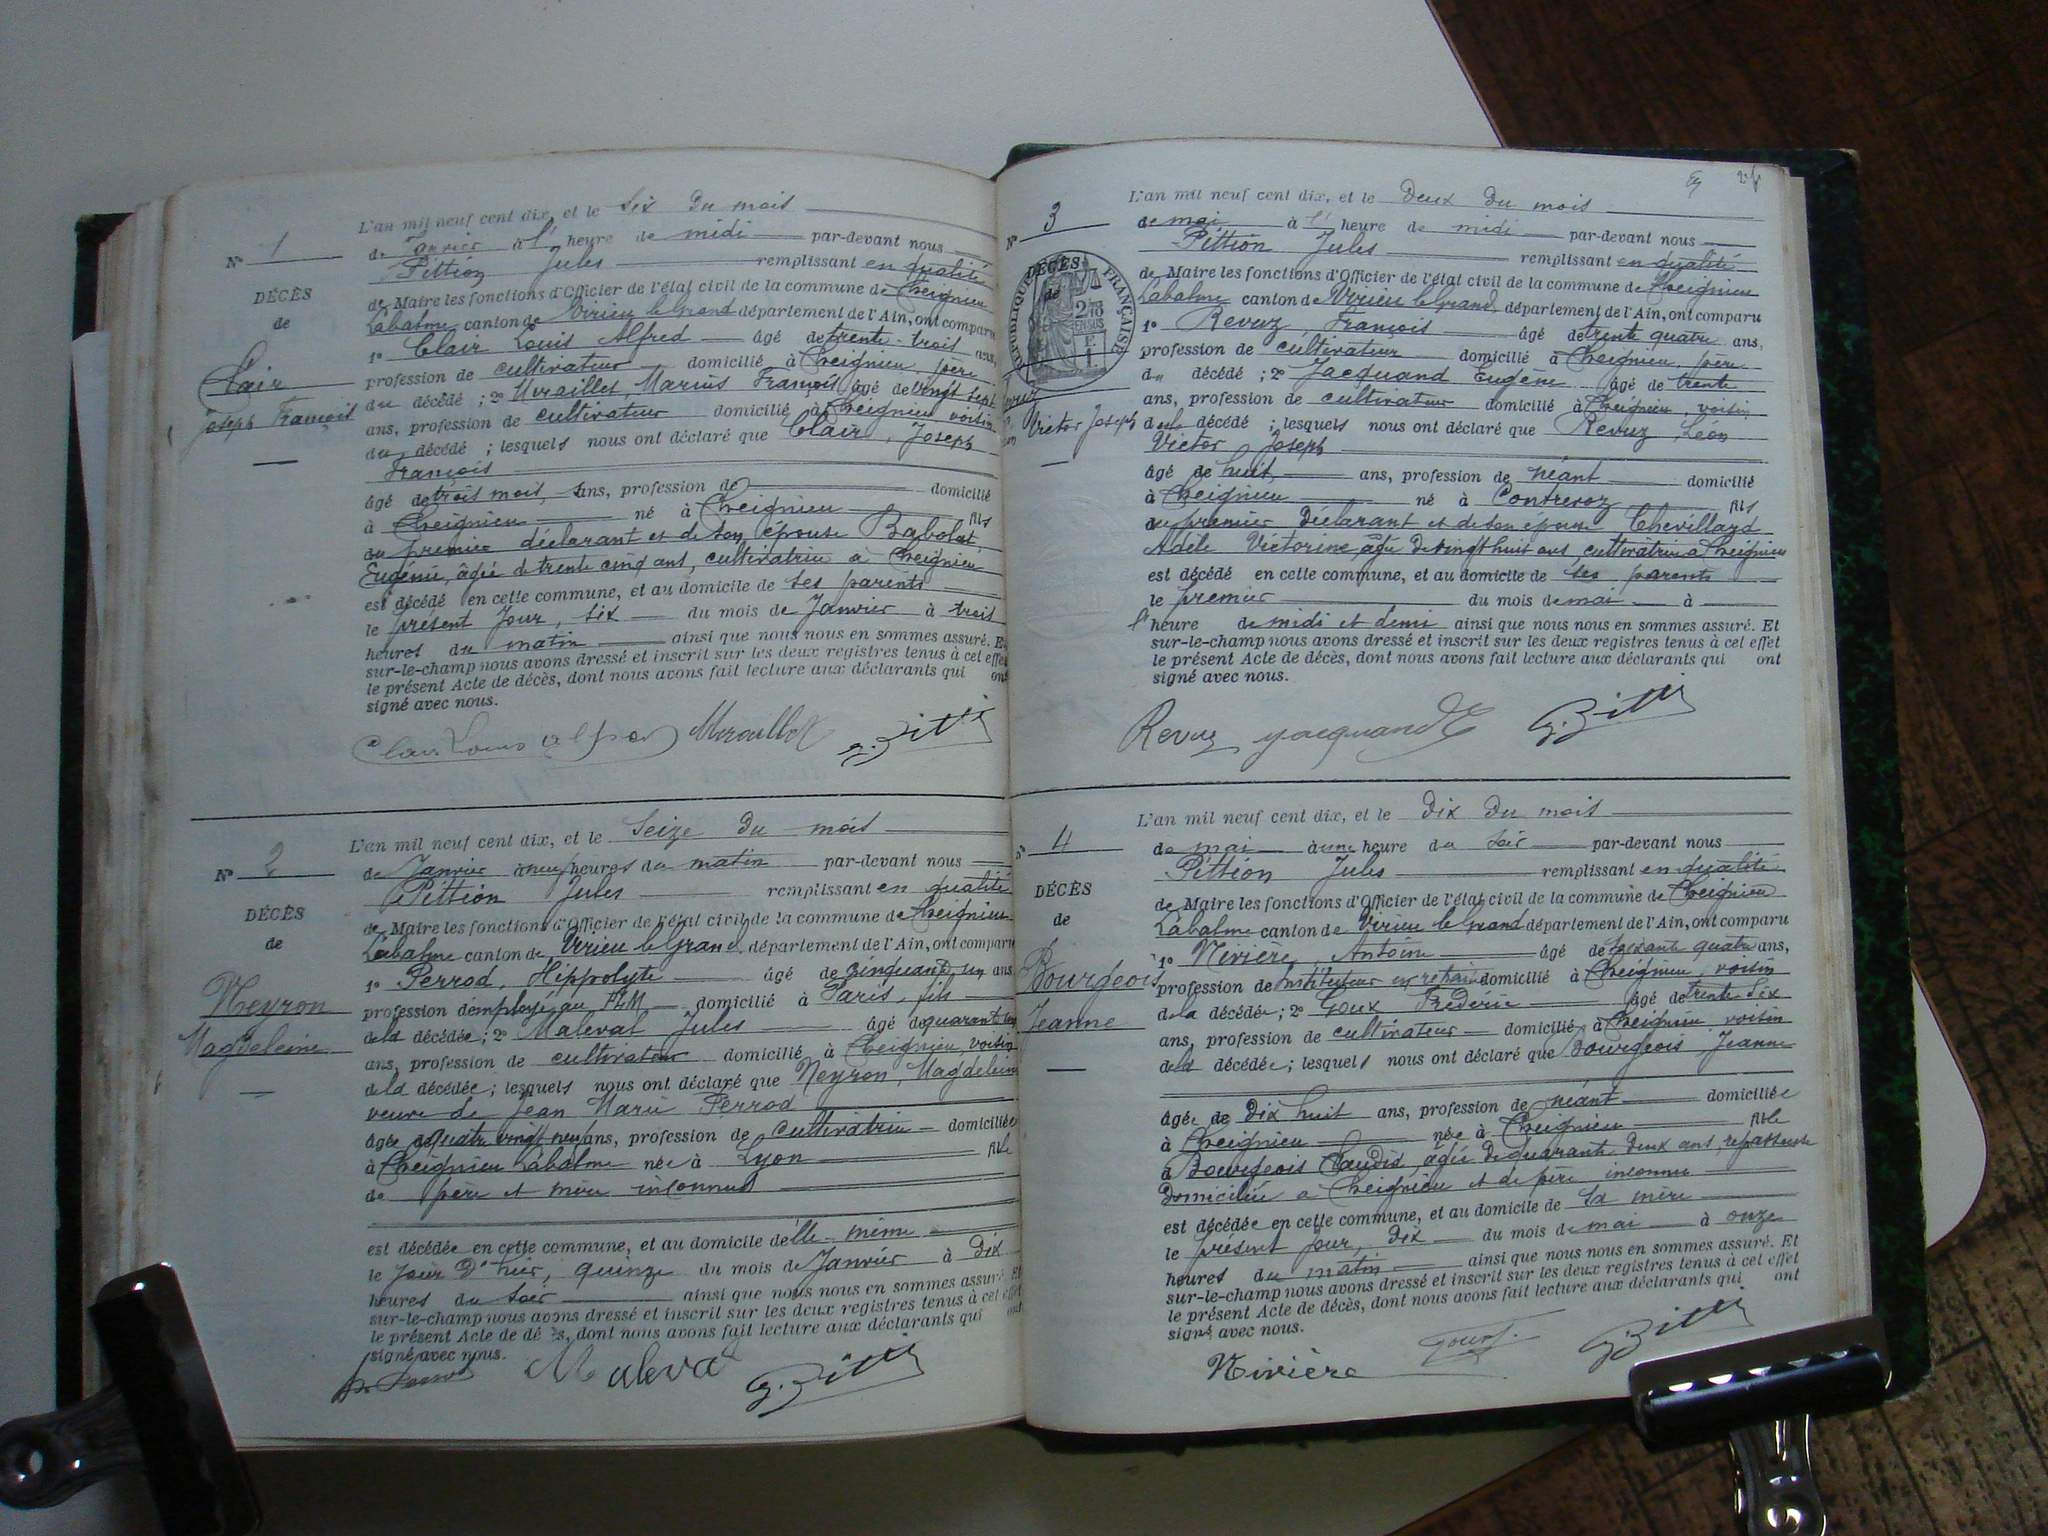 L'an mil neuf cent dix, et le Six du mois
de Janvier à l' heure de midi par-devant nous
Pittion Jules remplissant en qualité
de Maire les fonctions d'Officier de l'état civil de la commune de Cheignieu
Labalme canton de Virieu le Grand département de l'Ain, ont comparu
1º Clair Louis Alfred âgé de trente-trois ans,
profession de cultivateur domicilié à Cheignieu, père
du décédé ; 2º Marius François âgé de vingt sept
ans, profession de cultivateur domicilié à Cheignieu voisin
du décédé ; lesquels nous ont déclaré que Clair, Joseph
François
âgé de trois mois, ans, profession de domicilié
à Cheignieu né à Cheignieu fils
du premier déclarant et de son épouse Babolat,
Eugénie, âgée de trente cinq ans, cultivatrice à Cheignieu
est décédé en cette commune, et au domicile de ses parents
le présent Jour, six du mois de Janvier à trois
heures du matin ainsi que nous nous en sommes assuré. Et
sur-le-champ nous avons dressé et inscrit sur les deux registres tenus à cet effet
le présent Acte de décès, dont nous avons fait lecture aux déclarants qui ont
signé avec nous.
Nº 1
DÉCÈS
de
Clair
Joseph François
L'an mil neuf cent dix, et le Seize du mois
de Janvier à neuf heures du matin par-devant nous
Pittion Jules remplissant en qualité
de Maire les fonctions d'Officier de l'état civil de la commune de Cheignieu
Labalme canton de Virieu le Grand département de l'Ain, ont comparu
1º Perrod, Hippolyte âgé de cinquante un ans
profession d'employé au PLM domicilié à Paris, fils
de la décédée ; 2º Malevat Jules âgé de quarante un
ans, profession de cultivateur domicilié à Cheignieu, voisin
de la décédée ; lesquels nous ont déclaré que Neyron, Magdeleine
veuve de Jean Marie Perrod
âgée de quatre vingt neuf ans, profession de cultivatrice domiciliée
à Cheignieu Labalme née à Lyon fille
de père et mère inconnus
est décédée en cette commune, et au domicile d'elle-même
le Jour d'hier, quinze du mois de Janvier à Dix
heures du soir ainsi que nous nous en sommes assuré. Et
sur-le-champ nous avons dressé et inscrit sur les deux registres tenus à cet effet
le présent Acte de décès, dont nous avons fait lecture aux déclarants qui ont
signé avec nous.
Maleva
Nº 2
DÉCÈS
de
Neyron
Magdeleine
L'an mil neuf cent dix, et le Deux du mois
de mai à l' heure de midi par-devant nous
Pittion Jules remplissant en qualité
de Maire les fonctions d'Officier de l'état civil de la commune de Cheignieu
Labalme canton de Virieu le Grand, département de l'Ain, ont comparu
1º Revuz, François âgé de trente quatre ans,
profession de cultivateur domicilié à Cheignieu, père
du décédé ; 2º Jacquand Eugène âgé de trente
ans, profession de cultivateur domicilié à Cheignieu, voisin
du décédé ; lesquels nous ont déclaré que Revuz Léon
Victor Joseph
âgé de huit ans, profession de néant domicilié
à Cheignieu né à Contrevoz fils
du premier déclarant et de son épouse Chevillard
Adèle Victorine âgée de vingt huit ans, cultivatrice à Cheignieu
est décédé en cette commune, et au domicile de ses parents
le premier du mois de mai à
l'heure de midi et demi ainsi que nous nous en sommes assuré. Et
sur-le-champ nous avons dressé et inscrit sur les deux registres tenus à cet effet
le présent Acte de décès, dont nous avons fait lecture aux déclarants qui ont
signé avec nous.
Revuz
Nº 3
DÉCÈS
de
RÉPUBLIQUE FRANÇAISE
Victor Joseph
L'an mil neuf cent dix, et le dix du mois
de mai à une heure du soir par-devant nous
Pittion Jules remplissant en qualité
de Maire les fonctions d'Officier de l'état civil de la commune de Cheignieu
Labalme canton de Virieu le Grand département de l'Ain, ont comparu
1º Nivière, Antoine âgé de soixante quatre ans,
profession de Instituteur en retraite domicilié à Cheignieu, voisin
de la décédée ; 2º Goux Frédéric âgé de trente six
ans, profession de cultivateur domicilié à Cheignieu voisin
de la décédée ; lesquels nous ont déclaré que Bourgeois Jeanne
âgée de dix huit ans, profession de néant domiciliée
à Cheignieu née à Cheignieu fille
à Bourgeois Claudia, âgée de quarante deux ans, repasseuse
domiciliée à Cheignieu et de père inconnu
est décédée en cette commune, et au domicile de sa mère
le présent jour, dix du mois de mai à onze
heures du matin ainsi que nous nous en sommes assuré. Et
sur-le-champ nous avons dressé et inscrit sur les deux registres tenus à cet effet
le présent Acte de décès, dont nous avons fait lecture aux déclarants qui ont
signé avec nous.
Nivière
Nº 4
DÉCÈS
de
Bourgeois
Jeanne